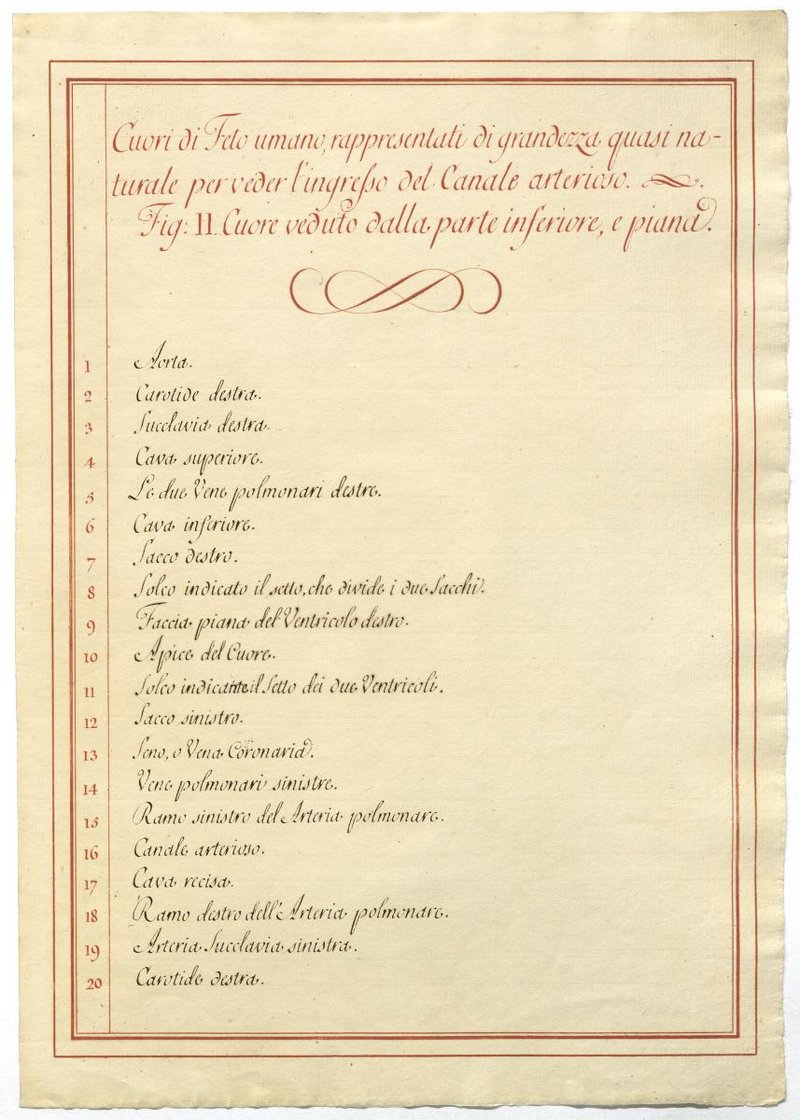 Cuori di Feto umano, rappresentati di grandezza quasi na-
turale per veder l'ingresso del Canale arterioso.
Fig: II. Cuore veduto dalla parte inferiore, e piana.
1 Aorta.
2 Carotide destra.
3 Succlavia destra.
4 Cava superiore.
5 Le due Vene polmonari destre.
6 Cava inferiore.
7 Sacco destro.
8 Solco indicato il setto, che divide i due Sacchi.
9 Faccia piana del Ventricolo destro.
10 Apice del Cuore.
11 Solco indicante il Setto dei due Ventricoli.
12 Sacco sinistro.
13 Seno, o Vena Coronaria.
14 Vene polmonari sinistre.
15 Ramo sinistro del Arteria polmonare.
16 Canale arterioso.
17 Cava recisa.
18 Ramo destro dell'Arteria polmonare.
19 Arteria Succlavia sinistra.
20 Carotide destra.